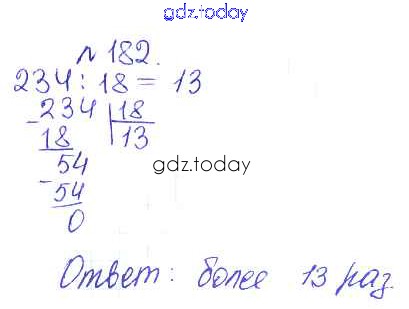 gdz.today
№ 182.
234 : 18 = 13
-234 | 18
18 | 13
54
-54
0
gdz.today
Ответ: более 13 раз